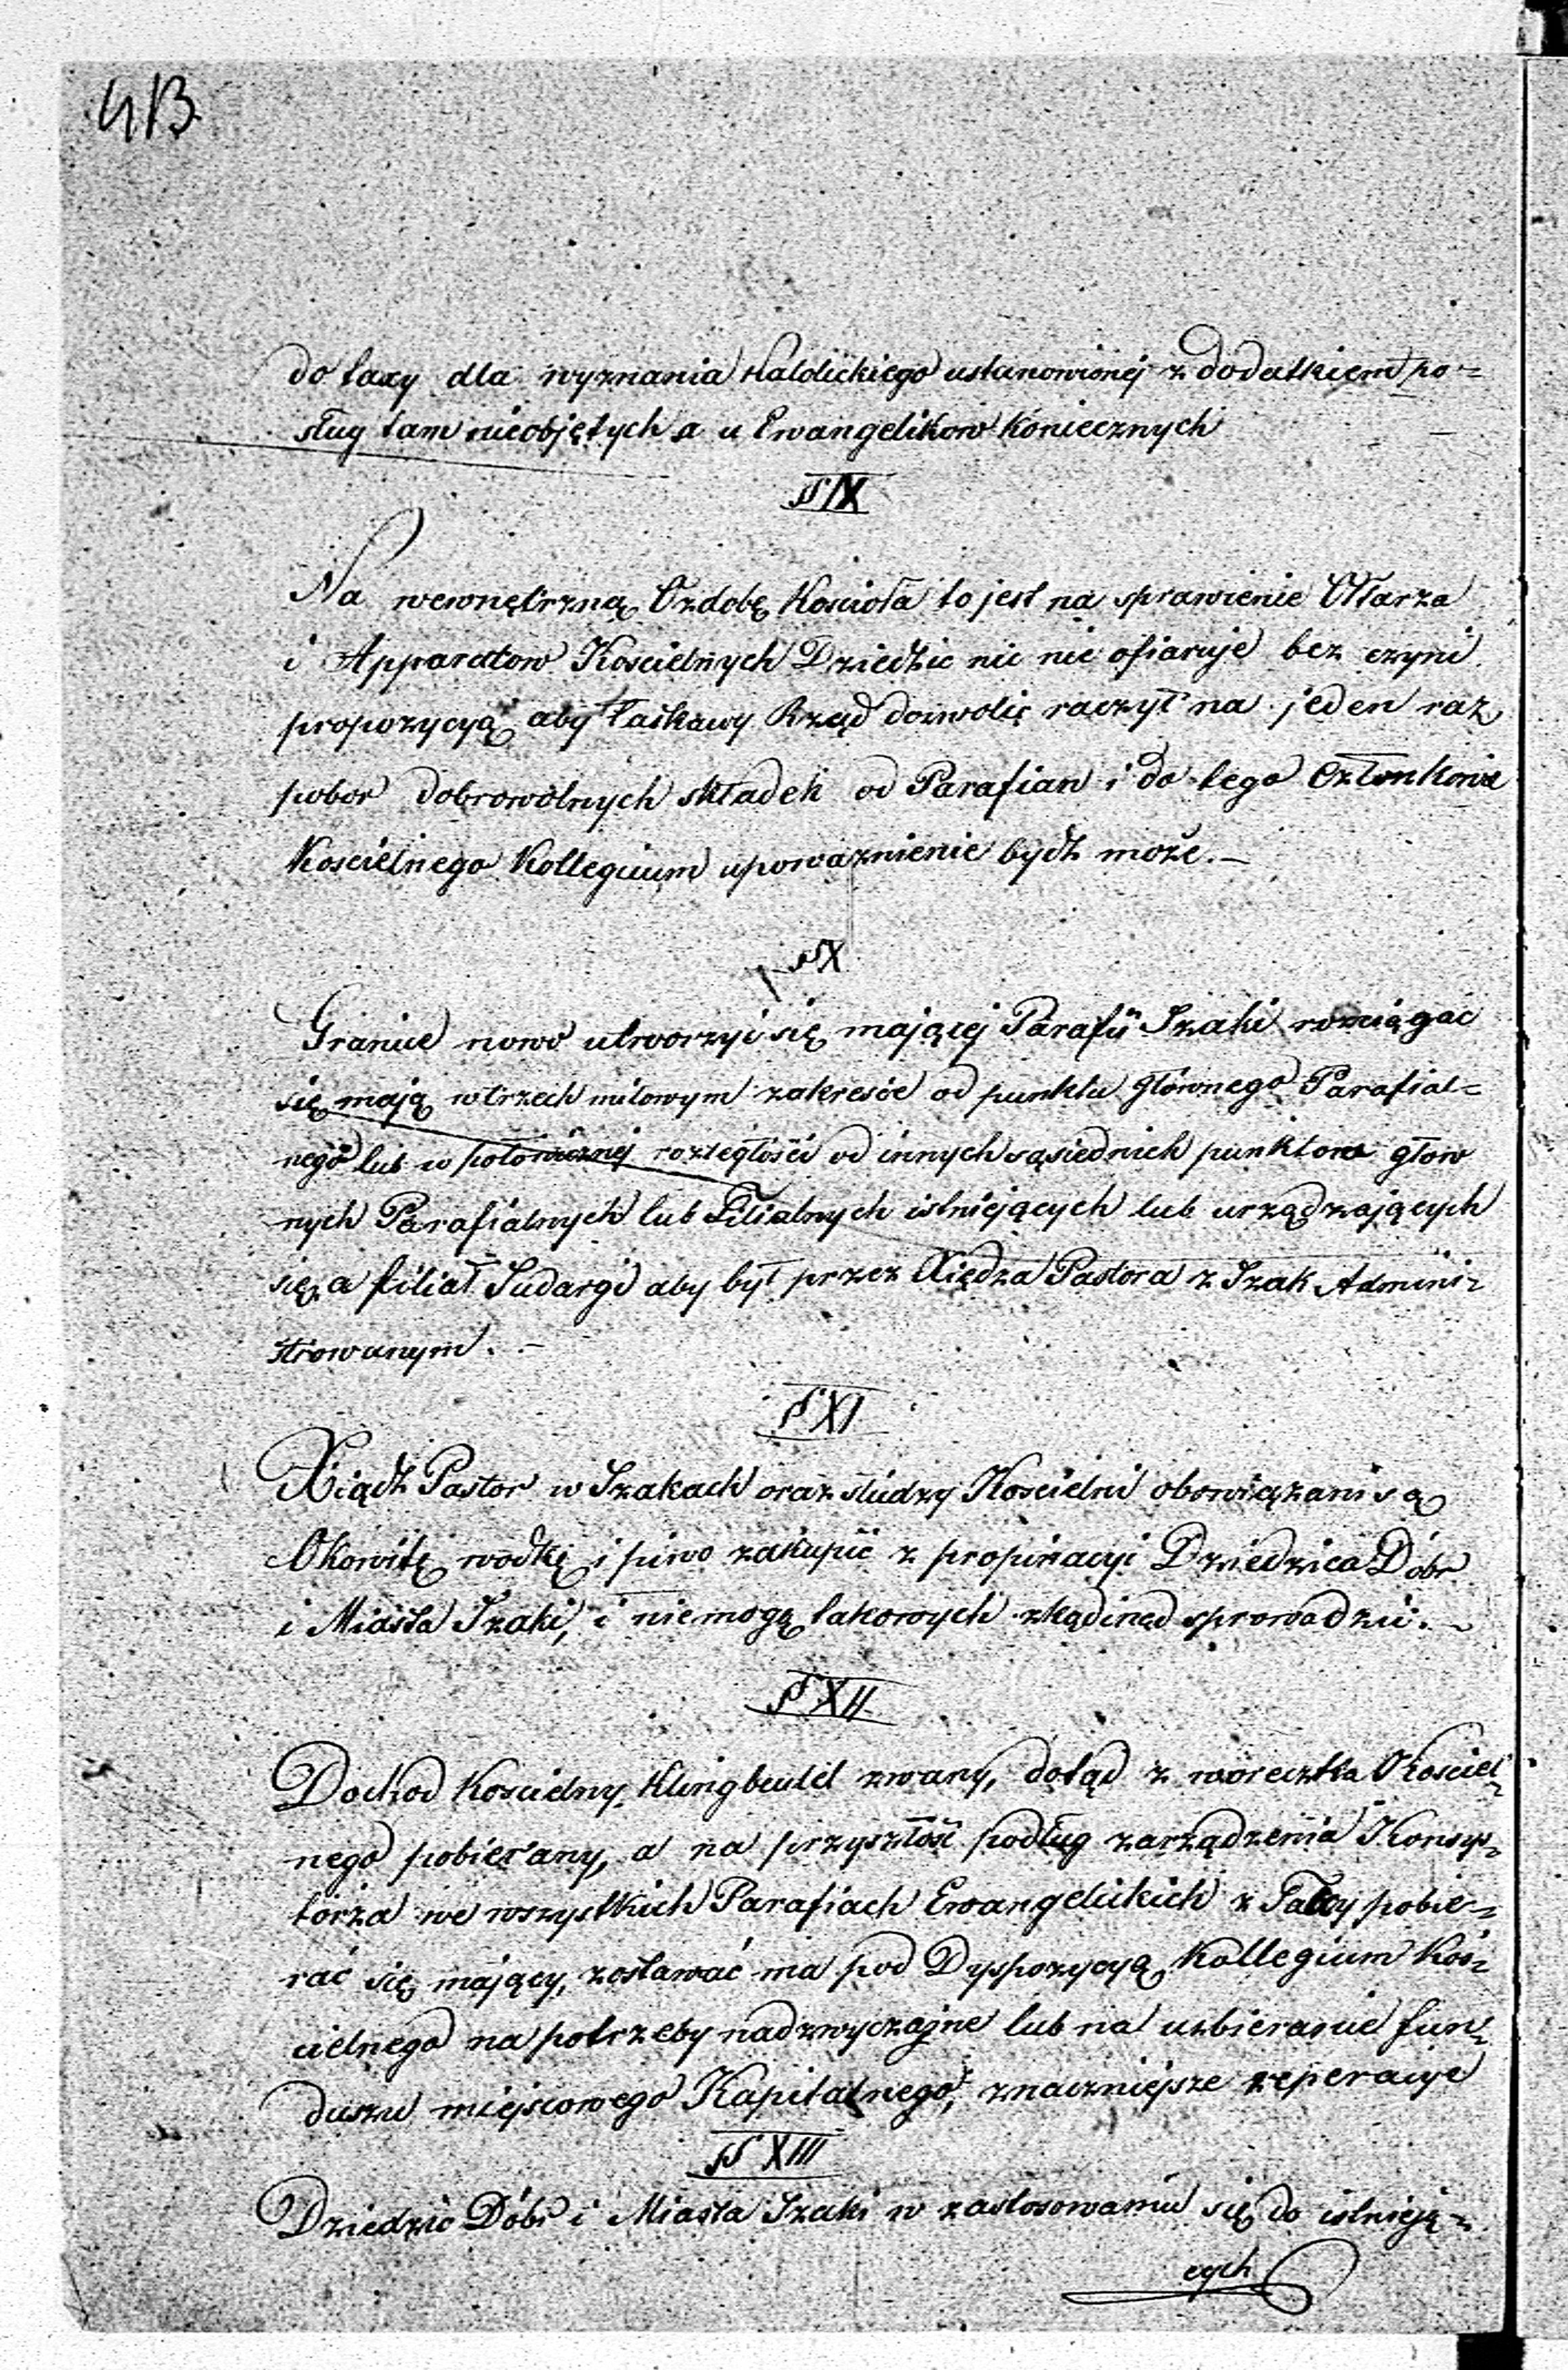 4B
do taxy dla wyznania Katolickiego ustanowionej z dodatkiem po-
sług tam nieobjętych a u Ewangelikow koniecznych
§ IX
Na wewnętrzną Ozdobę Kościoła to jest na sprawienie Ołtarza
i Apparatow Koscielnych Dziedzic nic nie ofiaruje bez czyni
propozycyą aby łaskawy Rząd dozwolić raczył na jeden raz
pobor dobrowolnych składek od Parafian i do tego Członkowie
Koscielnego Kollegium upoważnienie bydź może.—
§ X
Granice nowo utworzyć się mającej Parafii Szaki rozciągać
się mają w trzech milowym zakresie od punktu głównego Parafial=
nego lub w połowicznej rozległości od innych sąsiednich punktow głow
nych Parafialnych lub Filialnych istniejących lub urządzających
się, a filiał Sudargi aby był przez Xiędza Pastora z Szak Admini=
strowanym. —
§ XI
Xiądz Pastor w Szakach oraz słudzy Koscielni obowiązani są
Okowitę wodkę i piwo zakupić z propinacyi Dziedzica Dóbr
i Miasta Szaki, i niemogą takowych zkądinąd sprowadzić. ~
§ XII
Dochod Koscielny, Klingbeutel zwany, dotąd z woreczka Kosciel=
nego pobierany, a na przyszłość podług zarządzenia Konsys=
torza we wszystkich Parafiach Ewangelickich z Tacy pobie=
rać się mający, zostawać ma pod Dyspozycyą Kollegium Koś=
cielnego na potrzeby nadzwyczajne lub na uzbieranie fun=
duszu miejscowego Kapitalnego, znaczniejsze reperacye
§ XIII
Dziedzic Dóbr i Miasta Szaki w zastosowaniu się do istnieją=
cych